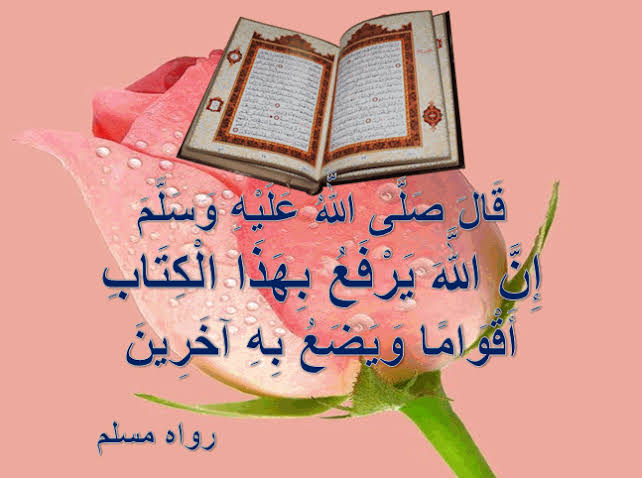 قَالَ صَلَّى اللَّهُ عَلَيْهِ وَسَلَّمَ
إِنَّ اللَّهَ يَرْفَعُ بِهَذَا الْكِتَابِ
أَقْوَامًا وَيَضَعُ بِهِ آخَرِينَ
رواه مسلم